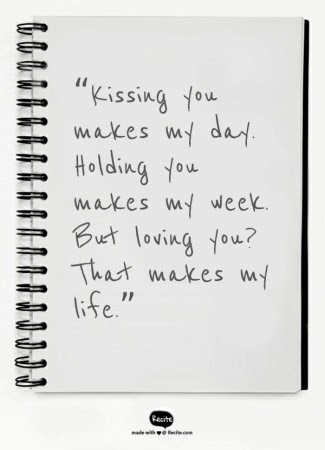 “Kissing you
makes my day.
Holding you
makes my week.
But loving you?
That makes my
life.”
Recite
made with ❤ @ Recite.com